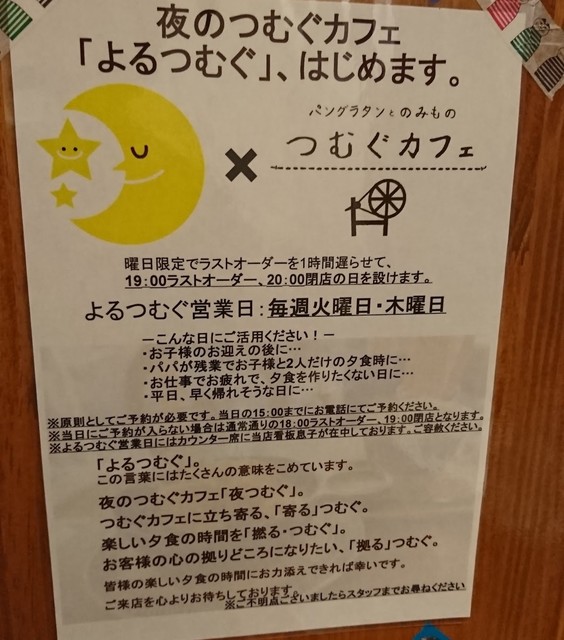 夜のつむぐカフェ
「よるつむぐ」、はじめます。
×
パングラタンとのみもの
つむぐカフェ
曜日限定でラストオーダーを1時間遅らせて、
19:00ラストオーダー、20:00閉店の日を設けます。
よるつむぐ営業日:毎週火曜日・木曜日
ーこんな日にご活用ください!ー
・お子様のお迎えの後に…
・パパが残業でお子様と2人だけの夕食時に…
・お仕事でお疲れで、夕食を作りたくない日に…
・平日、早く帰れそうな日に…
※原則としてご予約が必要です。当日の15:00までにお電話にてご予約ください。
※当日にご予約が入らない場合は通常通りの18:00ラストオーダー、19:00閉店となります。
※よるつむぐ営業日にはカウンター席に当店看板息子が在中しております。ご容赦ください。
「よるつむぐ」。
この言葉にはたくさんの意味をこめています。
夜のつむぐカフェ「夜つむぐ」。
つむぐカフェに立ち寄る、「寄る」つむぐ。
楽しい夕食の時間を「撚る・つむぐ」。
お客様の心の拠りどころになりたい、「拠る」つむぐ。
皆様の楽しい夕食の時間にお力添えできれば幸いです。
ご来店を心よりお待ちしております。
※ご不明点ございましたらスタッフまでお尋ねください